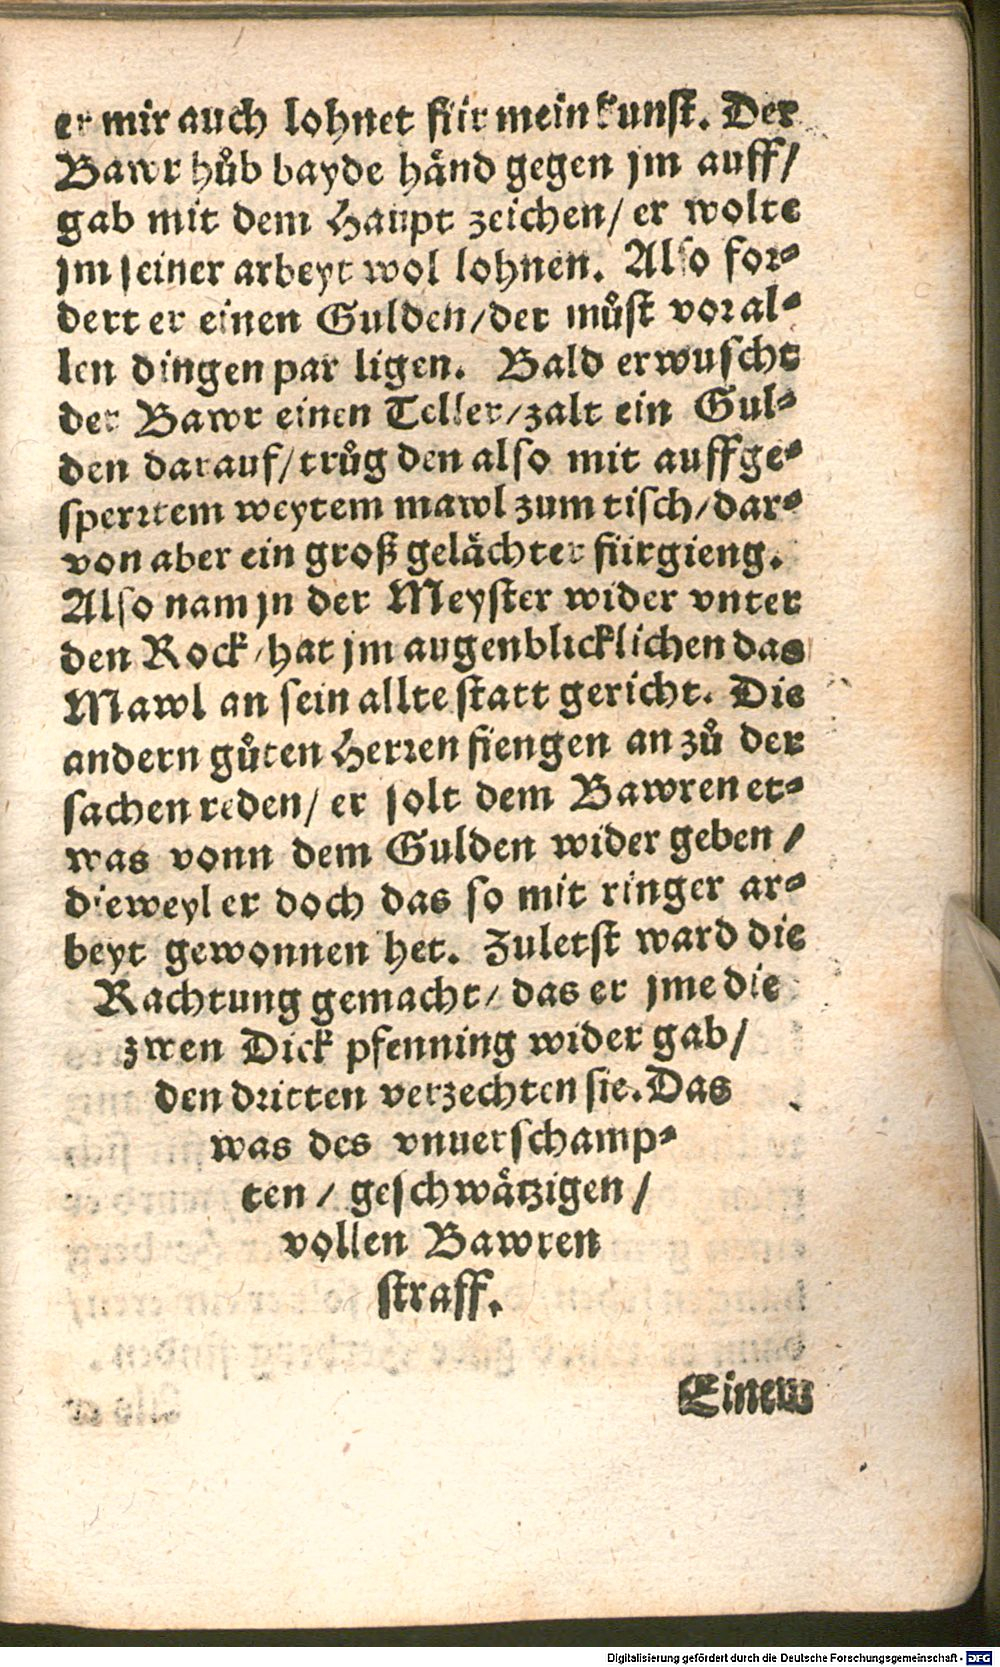 er mir auch lohnet für mein kunst. Der
Bawr hůb bayde händ gegen jm auff/
gab mit dem Haupt zeichen/ er wolte
jm seiner arbeyt wol lohnen. Also for⸗
dert er einen Gulden/ der můst vor al⸗
len dingen par ligen. Bald erwuscht
der Bawr einen Teller/ zalt ein Gul⸗
den darauf/ trůg den also mit auffge⸗
sperrtem weytem mawl zum tisch/ dar⸗
von aber ein groß gelächter fürgieng.
Also nam jn der Meyster wider vnter
den Rock/ hat jm augenblicklichen das
Mawl an sein allte statt gericht. Die
andern gůten Herren fiengen an zů der
sachen reden/ er solt dem Bawren et⸗
was vonn dem Gulden wider geben/
dieweyl er doch das so mit ringer ar⸗
beyt gewonnen het. Zuletst ward die
Rachtung gemacht/ das er jme die
zwen Dick pfenning wider gab/
den dritten verzechten sie. Das
was des vnuerschamp⸗
ten/ geschwätzigen/
vollen Bawren
straff.
Einem
Digitalisierung gefördert durch die Deutsche Forschungsgemeinschaft - DFG